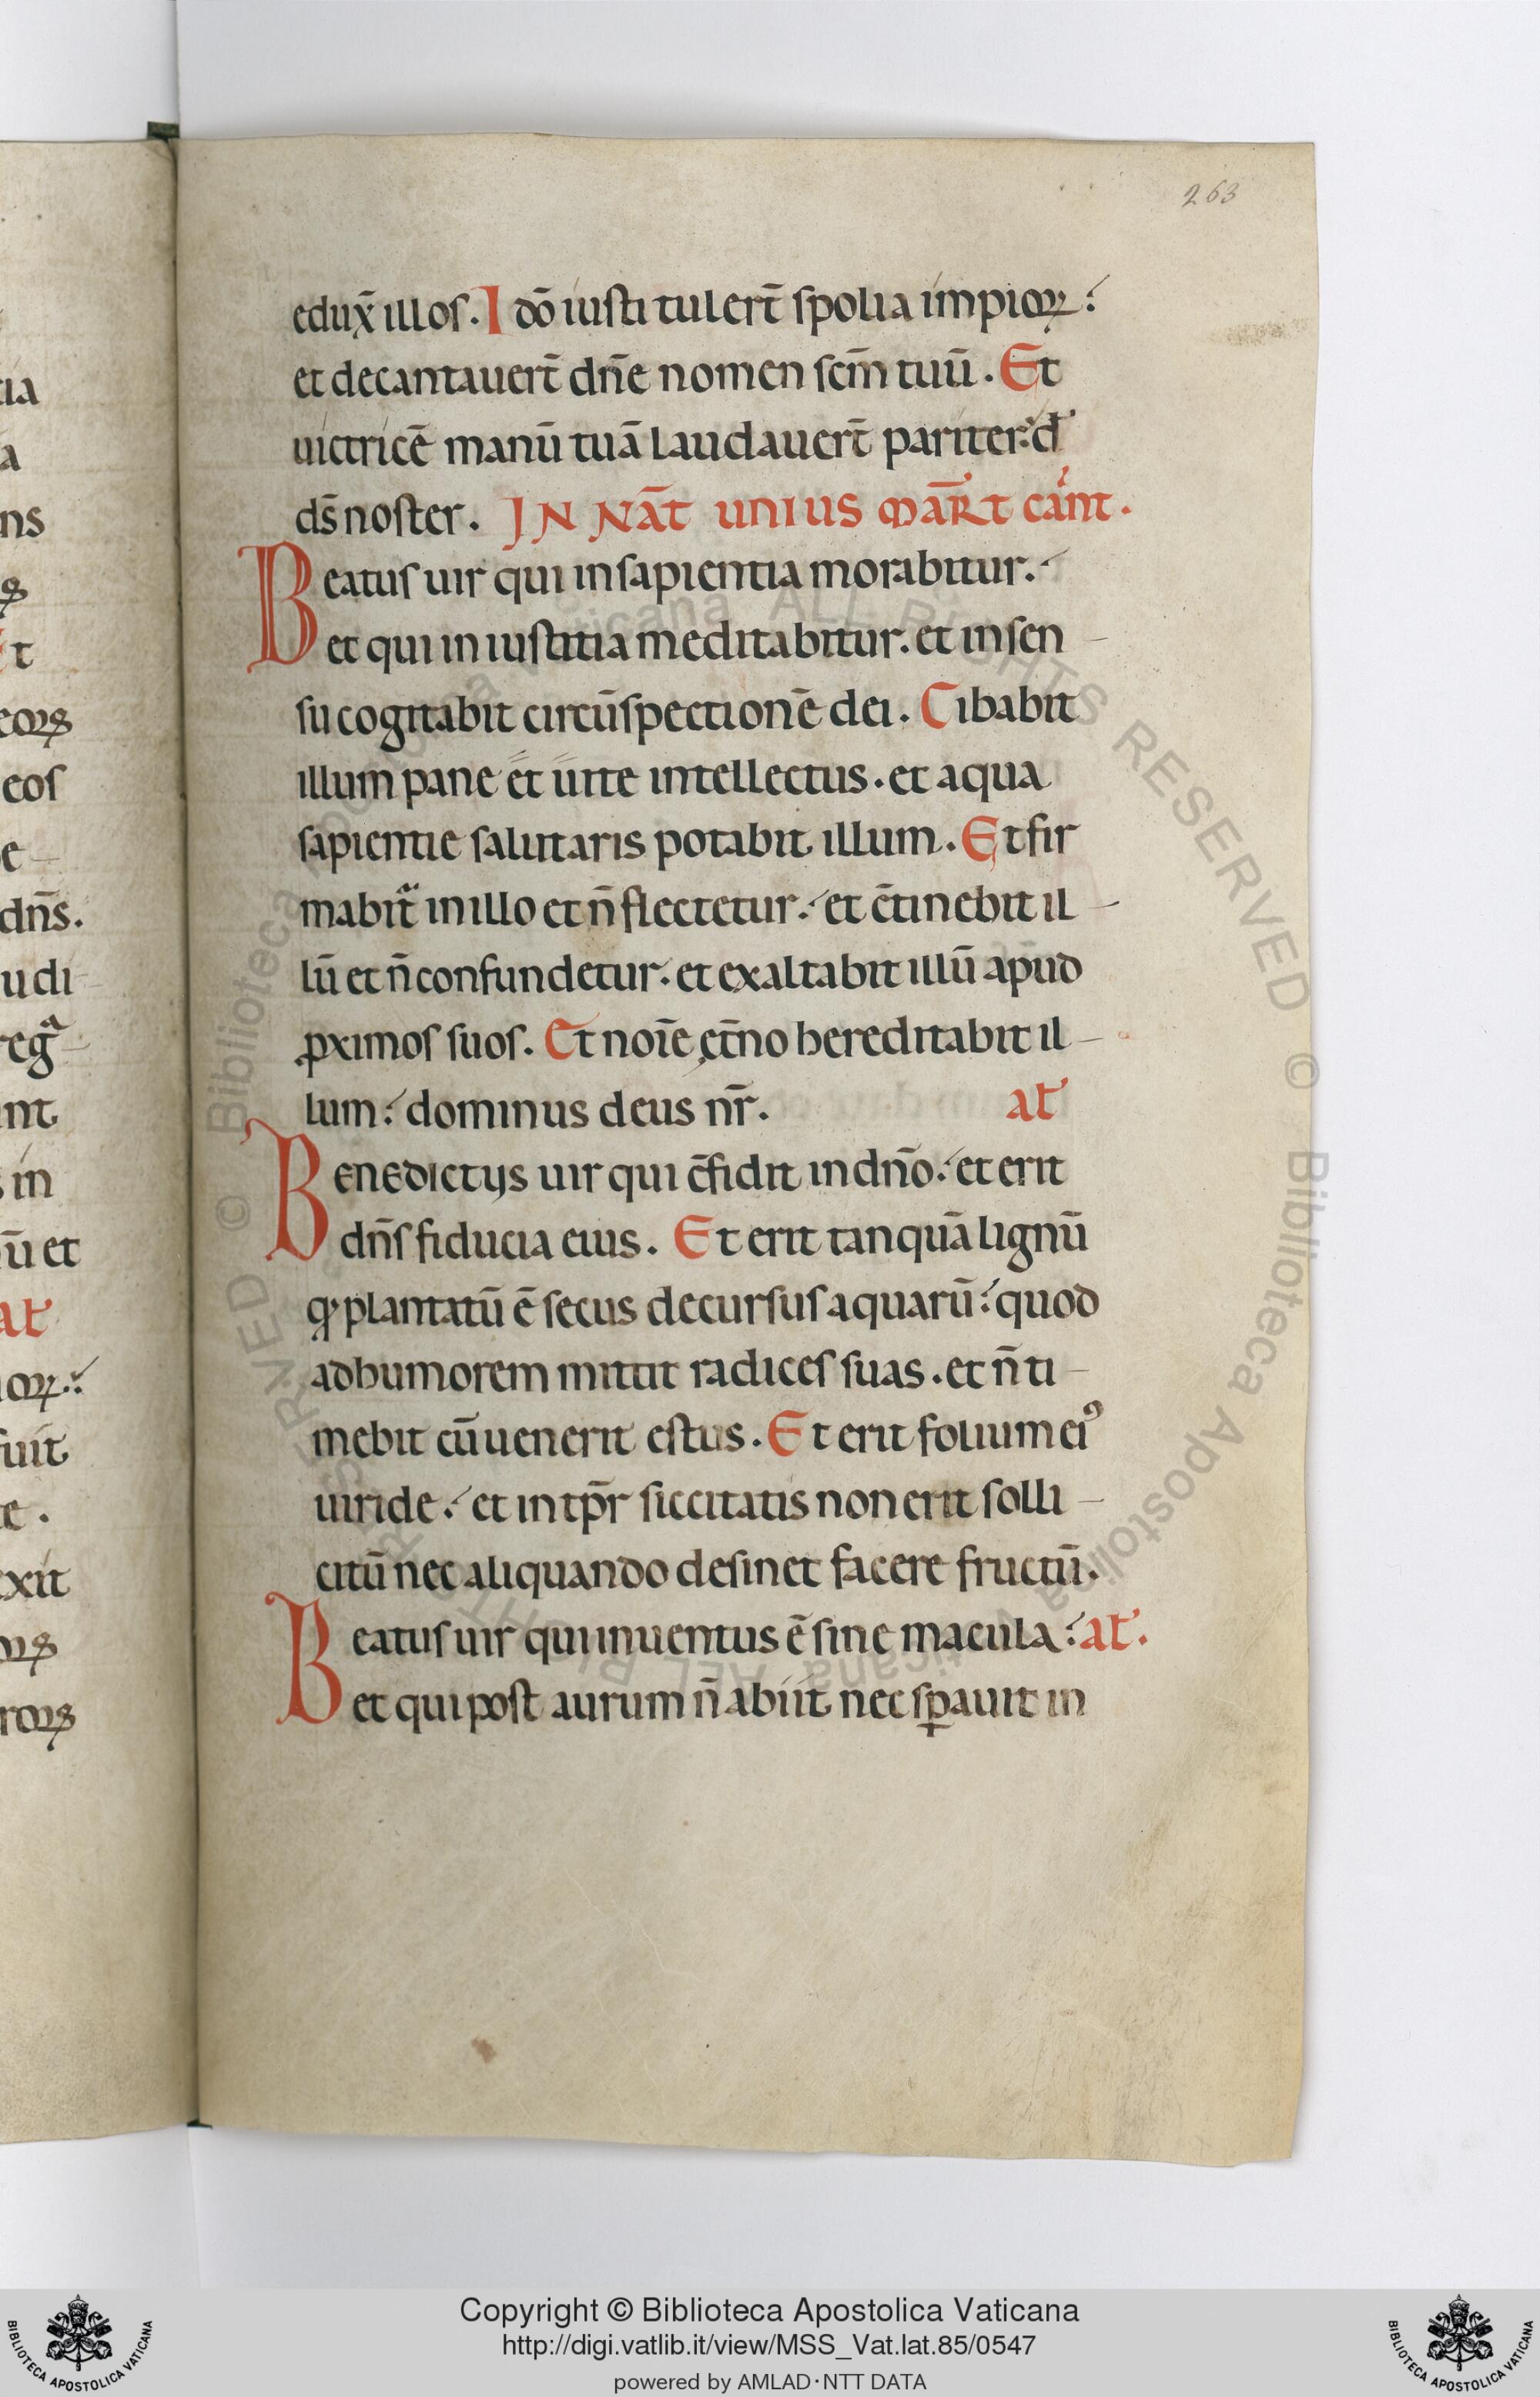 263
edux̄ illos. Idō iusti tulert̄ spolia impioꝝ:
et decantauert̄ dn̄e nomen scm̄ tuū. Et
uictricē manū tuā laudauert̄ pariter:
ds̄ noster. IN NAT̄ UNIUS MAR̄T CANT.
Beatus uir qui in sapientia morabitur.
et qui in iustitia meditabitur. et in sen
su cogitabit circūspectionē dei. Cibabit
illum pane et uite intellectus. et aqua
sapientie salutaris potabit illum. Et fir
mabitᷓ in illo et n̄ flectetur. et c̄tinebit il
lū et n̄ confundetur. et exaltabit illū apud
ꝓximos suos. Et noīe et̄no hereditabit il
lum: dominus deus nr̄. at̄
Benedictus uir qui c̄fidit in dn̄o: et erit
dn̄s fiducia eius. Et erit tanquā lignū
qđ plantatū ē secus decursus aquarū: quod
ad humorem mittit radices suas. et n̄ ti
mebit cū uenerit estus. Et erit folium eiꝰ
uiride: et in tp̄r siccitatis non erit solli
citū nec aliquando desinet facere fructū.
Beatus uir qui inuentus ē sine macula: at̄.
et qui post aurum n̄ abiit nec sꝑauit in
ia
a
ns
t
eos
e
dn̄s.
udi
regᷓ
nt
in
ū et
at̄
oꝝ:
fuit
te.
xit
Copyright © Biblioteca Apostolica Vaticana
http://digi.vatlib.it/view/MSS_Vat.lat.85/0547
powered by AMLAD·NTT DATA
BIBLIOTECA APOSTOLICA VATICANA
BIBLIOTECA APOSTOLICA VATICANA